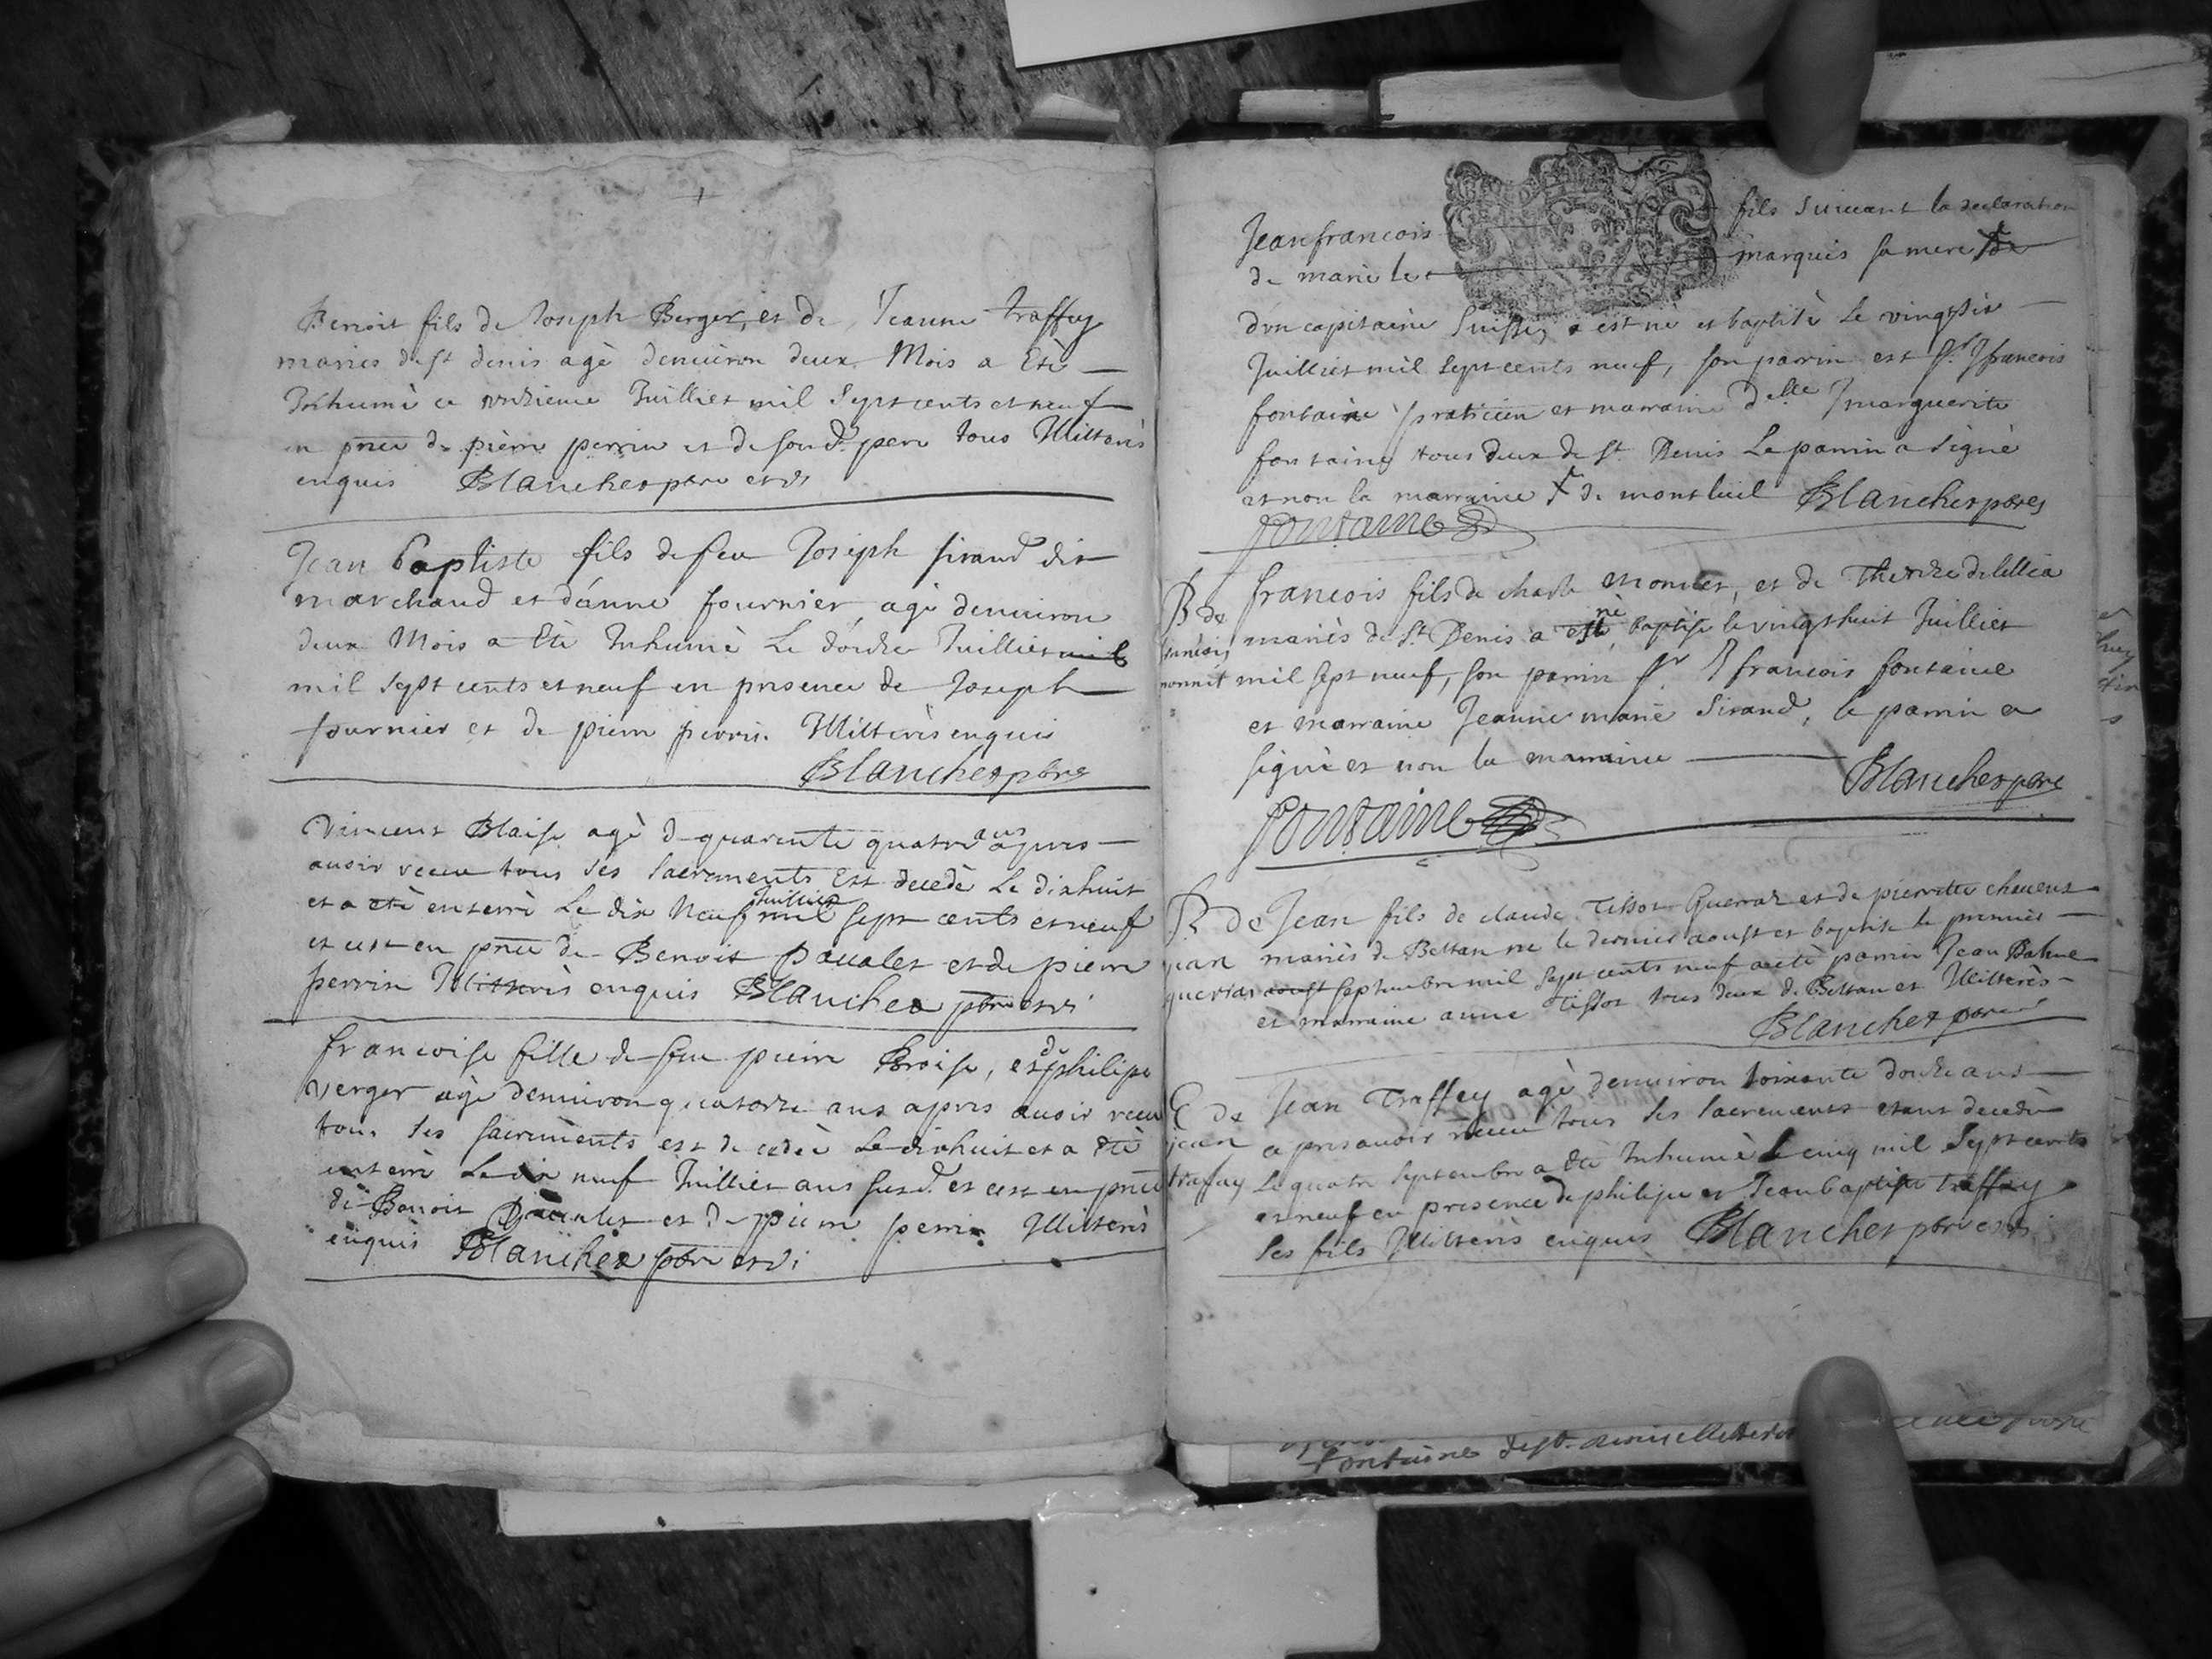 Benoit fils de Joseph Berger, et de Jeanne traffey
maries de st denis agè denuiron deux Mois a Etè
Inhumè ce onzieme Juillier mil Sept cents et neuf
en pnce de pierre perrin et de son d. pere tous Illiterès
enquis Blanchet
Jean baptiste fils de feu Joseph sirand dit
marchand et d'anne fournier, agè denuiron
deux Mois a Etè Inhumè Le douze Juillier mil
mil Sept cents et neuf en presence de Joseph
fournier et de pierre perrin Illiterès enquis
Blanchet
Vincent Blaise agè de quarente quatre ans apres
auoir receu tous ses sacrements Est decedè Le dixhuit
et a etè enterrè Le dix Neuf Juillier mil sept cents et neuf
et cest en pnce de Benoit et de pierre
perrin Illiterès enquis Blanchet
francoise fille de feu pierre Broise, et de philipe
verger agè denuiron quatorze ans apres auoir receu
tous ses sacrements est decedèe Le dixhuit et a etè
enterrè Le dix neuf Juillier ans susd. et cest en pnce
de Benoit et de pierre perrin Illiterès
enquis Blanchet
Jean francois fils suiuant la declaration
de marie le marquis sa mere de
d'vn capitaine Suisse, est nè et baptisè Le vingt six
Juillier mil sept cents neuf, son parrin est Sr. Jfrancois
fontaine praticien et marraine delle Jmarguerite
fontaine tous deux de St Denis Le parrin a signè
et non la marraine de montluel Blanchet
fontaine
B de francois fils de charle monnet, et de
francois mariès de St Denis a estè nè baptisè le vingt huit Juillier
monnet mil sept neuf, son parrin Sr francois fontaine
et marraine Jeanne marie Sirand, le parrin a
signè et non la marraine
Blanchet
fontaine
B de Jean fils de claude Tissot Guerraz et de pierrette
jean mariès de Bettan ne le dernier aoust et baptisè le premier
guerraz aoust septembre mil sept cents neuf a etè parrin Jean
et marraine anne Tissot tous deux de Bettan et Illiterès
Blanchet
E de Jean Traffey agè denuiron soixante douze ans
jean apres auoir receu tous ses sacrements etant decedè
traffay Le quatre septembre a Etè Inhumè Le cinq mil Sept cents
et neuf en presence de philipe et Jean baptiste traffay
ses fils Illiterès enquis Blanchet
fontaine